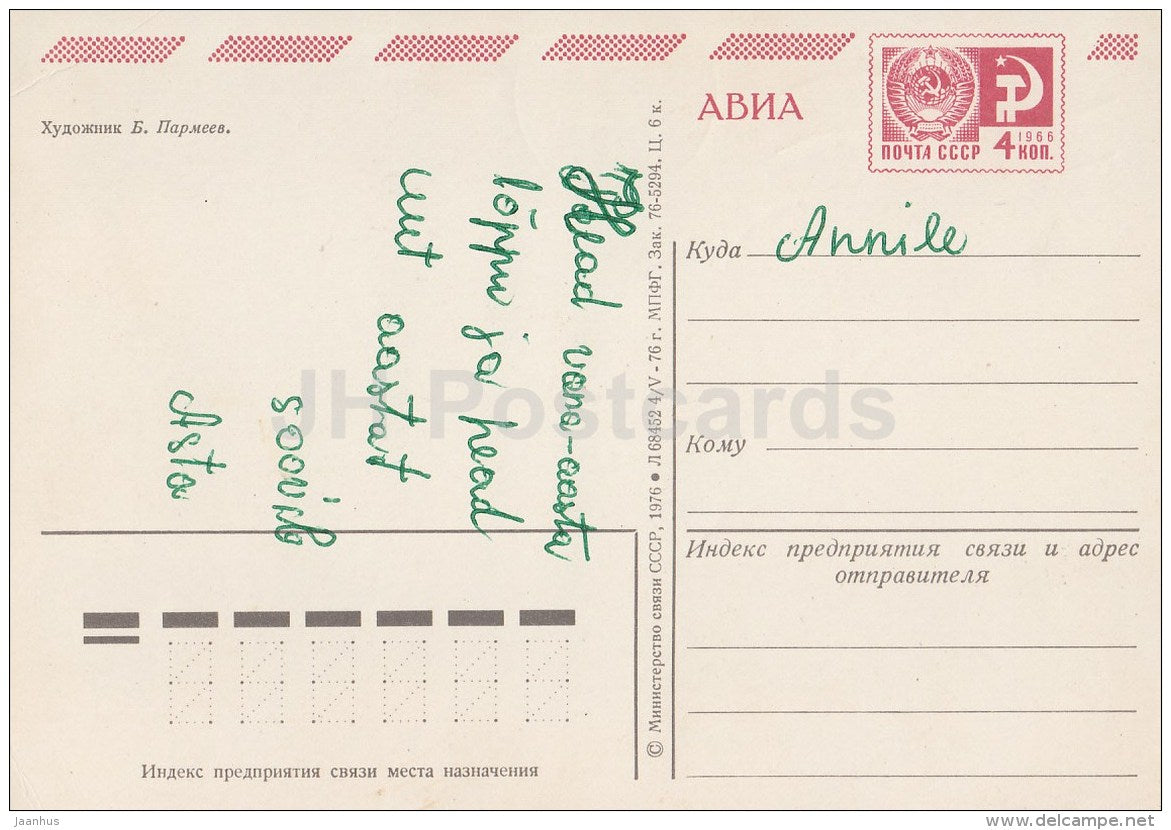 Художник Б. Пармеев.
АВИА
ПОЧТА СССР
1966
4 КОП.
Head vana-aasta
lõppu ja head
uut aastat
soovib
Asta
© Министерство связи СССР, 1976 • Л 68452 4/V - 76 г. МПФГ. Зак. 76-5294. Ц. 6 к.
Куда Annile
Кому
Индекс предприятия связи и адрес
отправителя
Индекс предприятия связи места назначения
JH Postcards
Jaanhus
www.delcampe.net